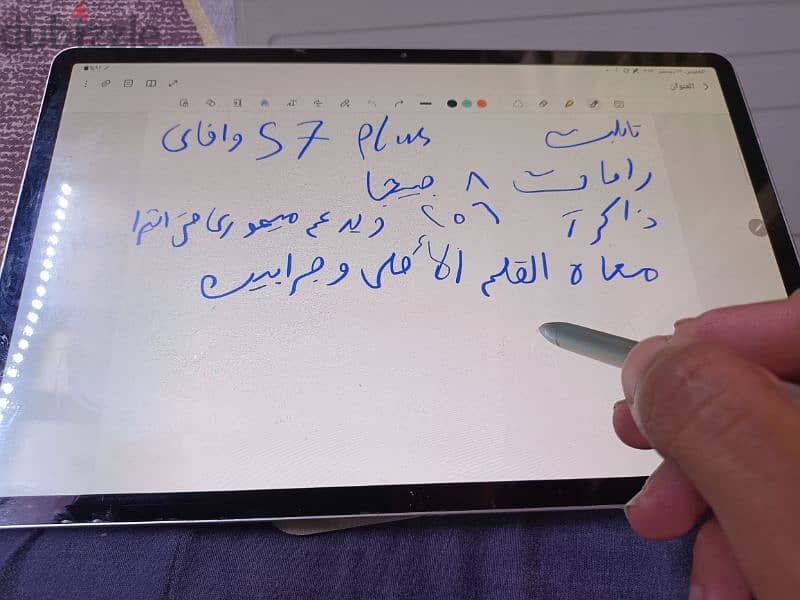 dubizzle
العنوان
تابلت S7 Plus وافاى
رامات ٨ جيجا
ذاكرة ٢٥٦ ويدعم ميمورى
معاه القلم الأصلى وجرابين